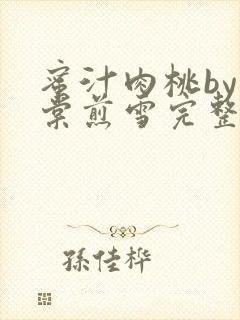 蜜汁肉桃by
棠煎雪完整
孫佳桦